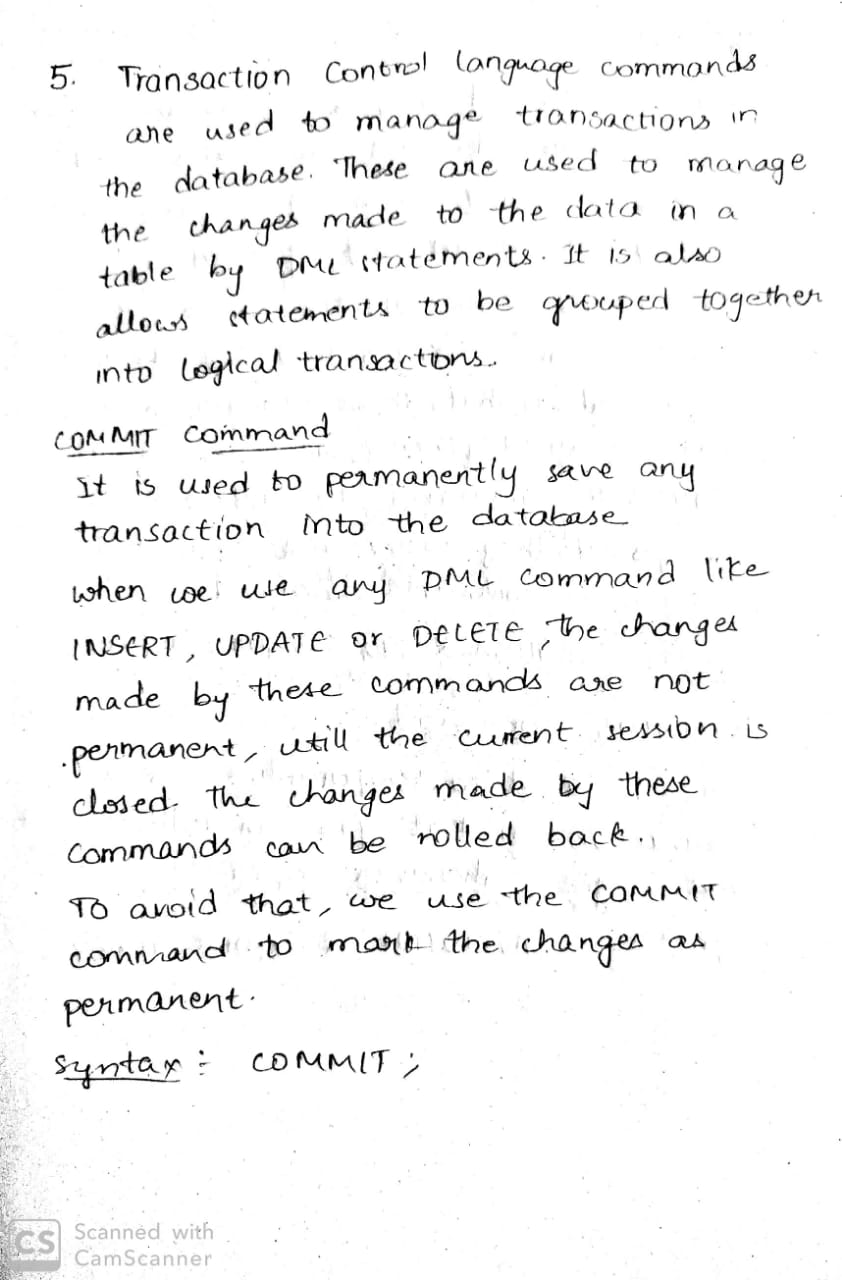 5. Transaction Control language commands
are used to manage transactions in
the database. These are used to manage
the changes made to the data in a
table by DML statements. It is also
allows statements to be grouped together
into logical transactions.
COMMIT Command
It is used to permanently save any
transaction into the database
when we use any DML command like
INSERT, UPDATE or DELETE, the changes
made by these commands are not
permanent, utill the current session is
closed. The changes made by these
commands can be rolled back.
To avoid that, we use the COMMIT
command to mark the changes as
permanent.
Syntax : COMMIT ;
CS Scanned with
CamScanner